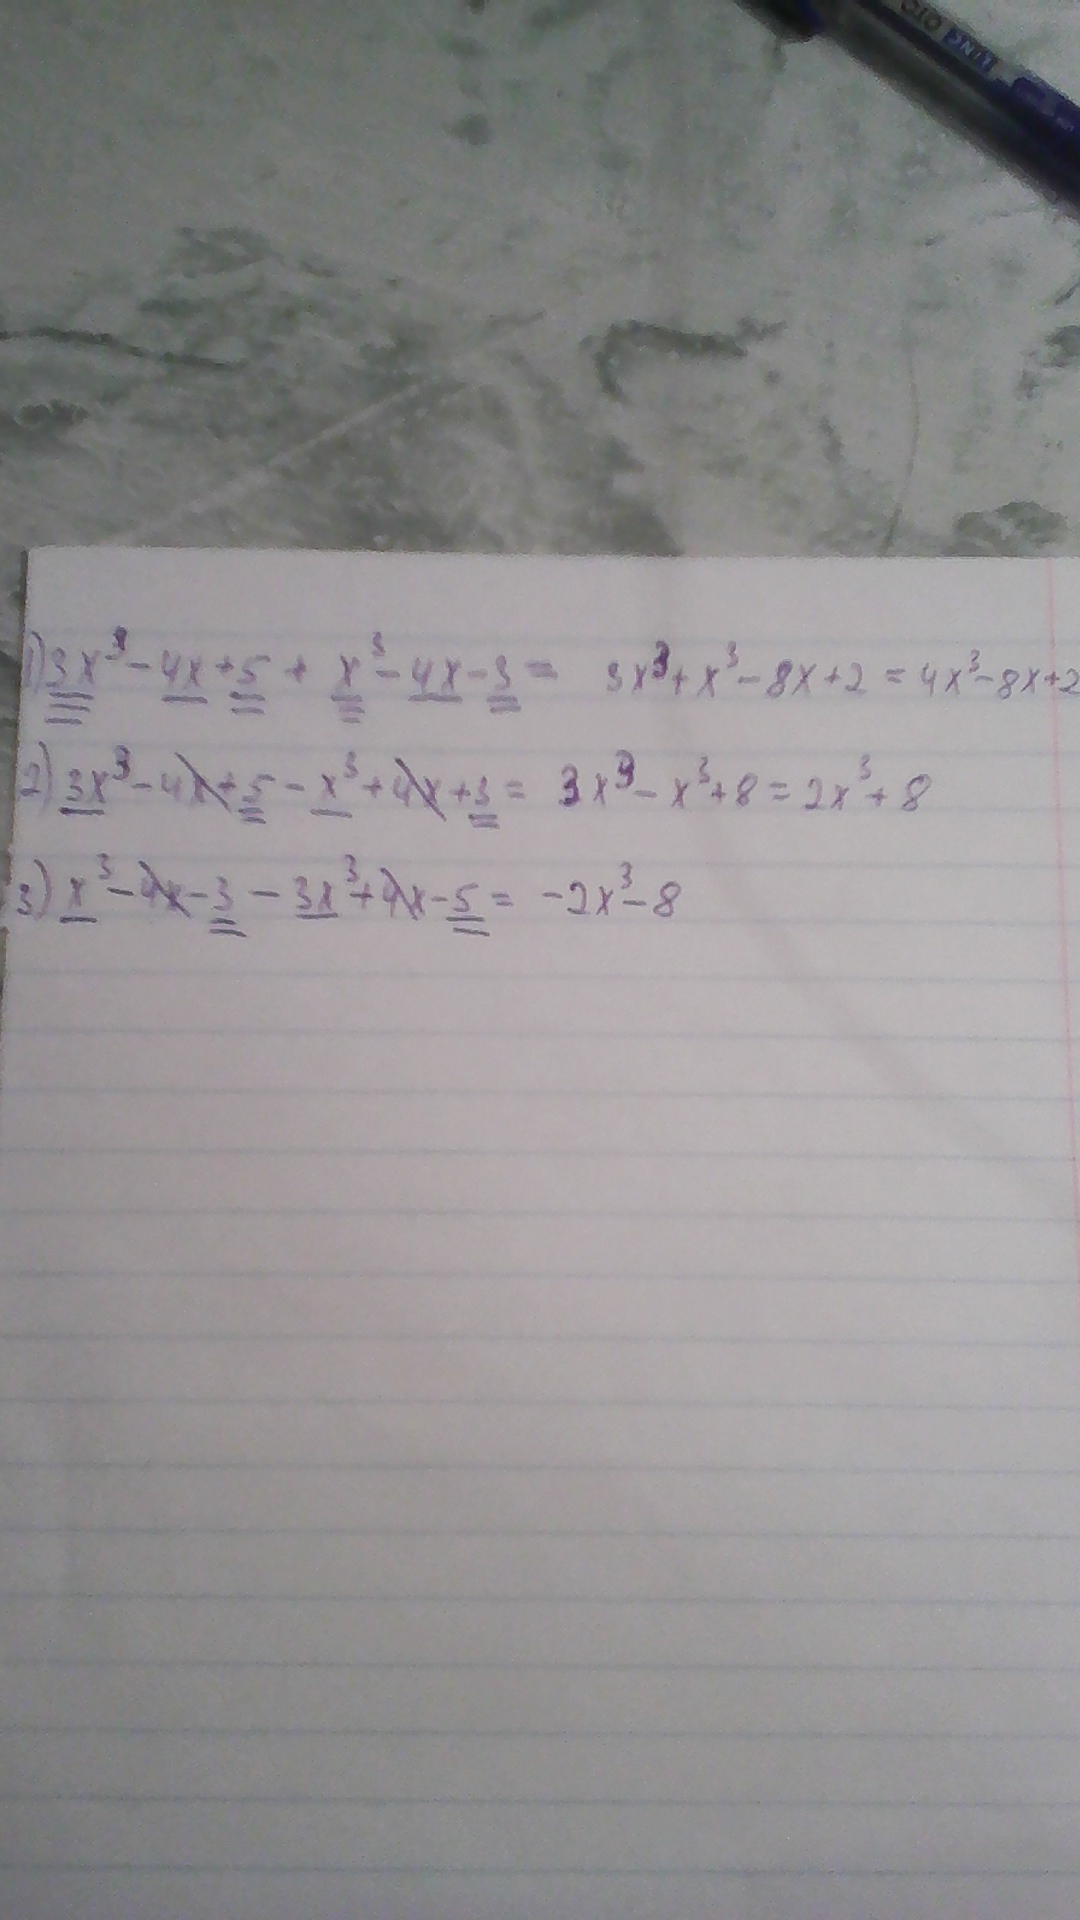 LINC OTO
1) 3x³ - 4x + 5 + x³ - 4x - 3 = 3x³ + x³ - 8x + 2 = 4x³ - 8x + 2
2) 3x³ - 4x + 5 - x³ + 4x + 3 = 3x³ - x³ + 8 = 2x³ + 8
3) x³ - 4x - 3 - 3x³ + 4x - 5 = -2x³ - 8